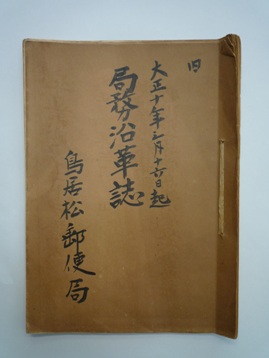 旧
大正十年三月十六日起
局務沿革誌
鳥居松郵便局